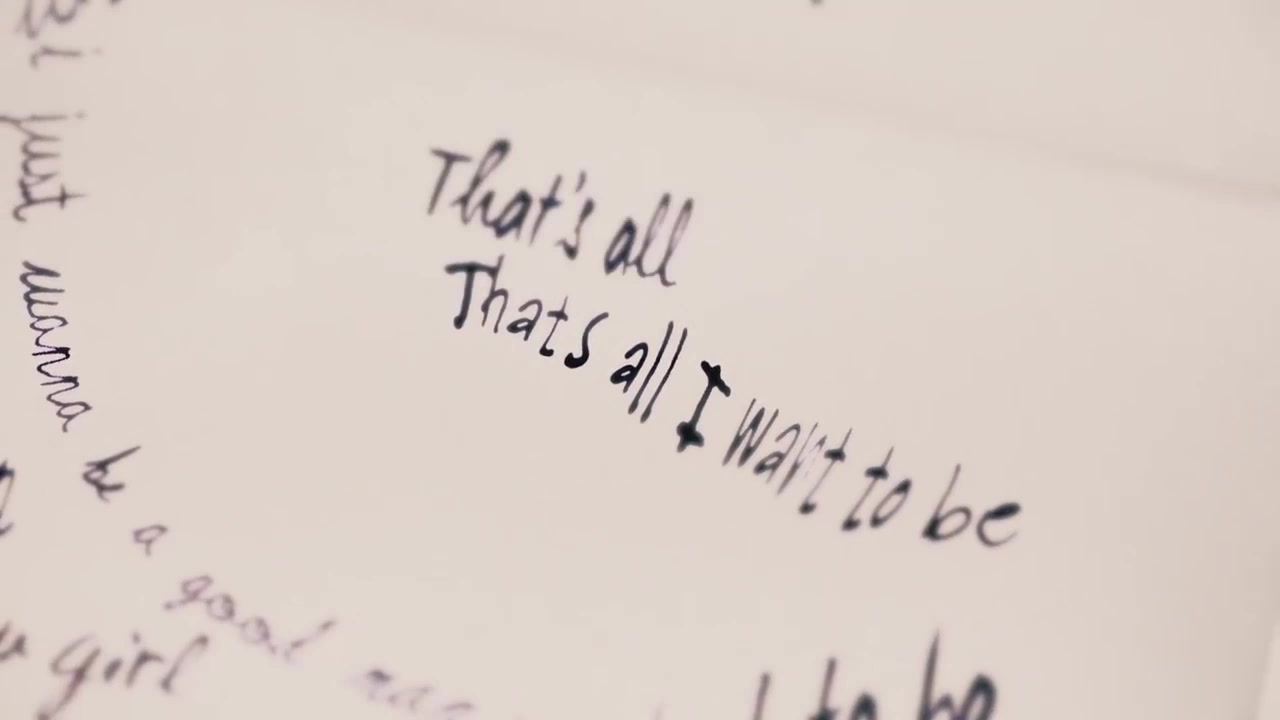 i just wanna be a good man
That's all
Thats all I want to be
girl
to be